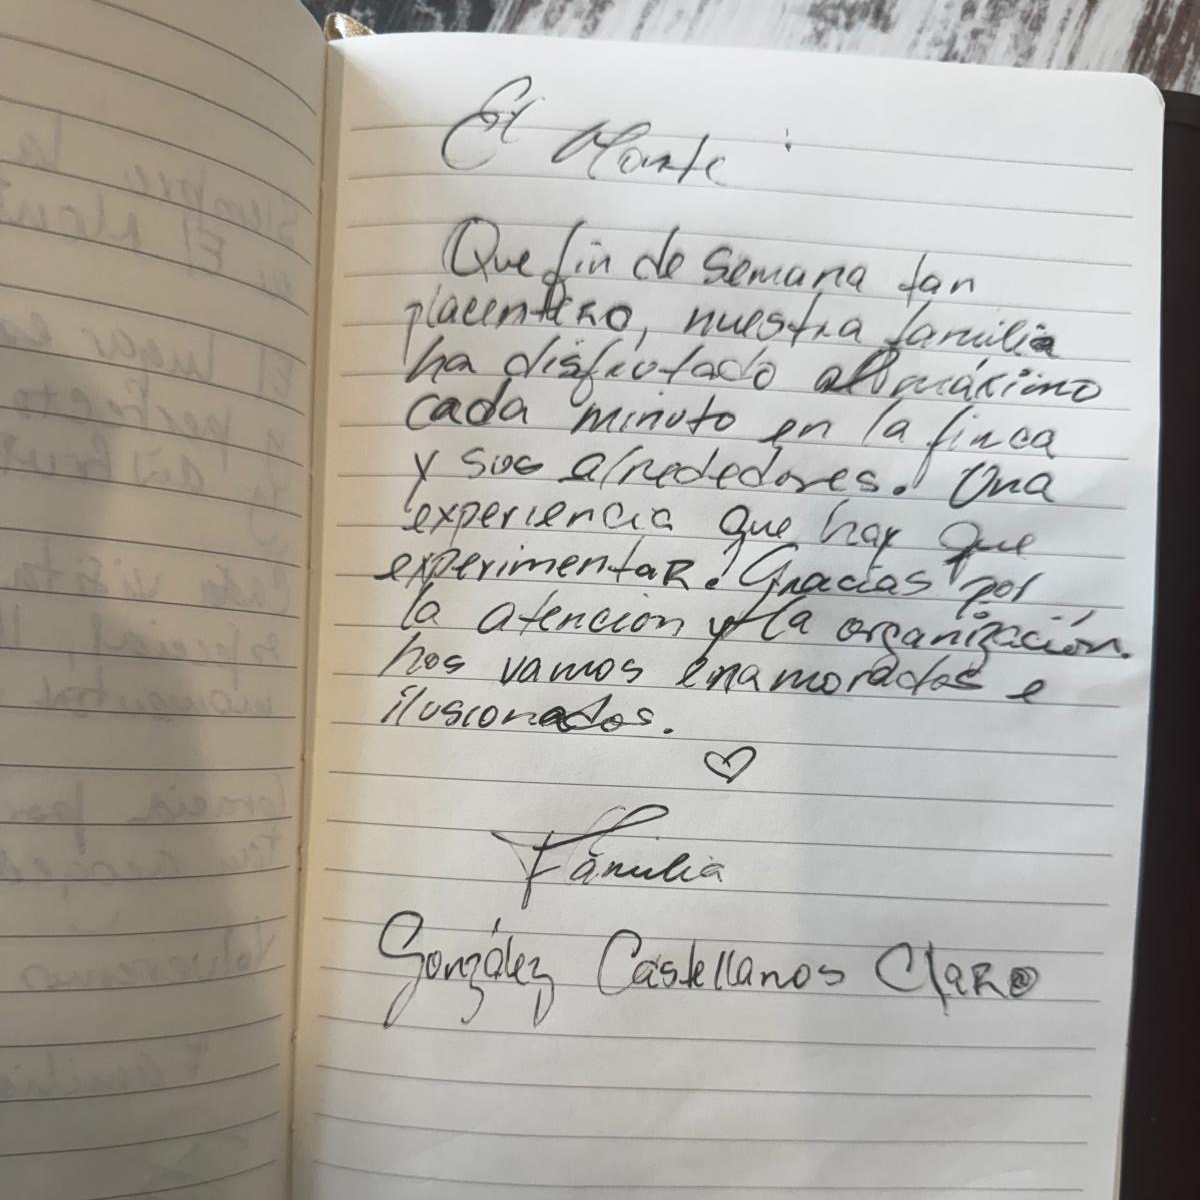 El Monte :
Que fin de semana tan
placentero, nuestra familia
ha disfrutado al máximo
cada minuto en la finca
y sus alrededores. Una
experiencia que hay que
experimentar. Gracias por
la atención y la organización.
Nos vamos enamorados e
ilusionados.
Familia
González Castellanos Claro